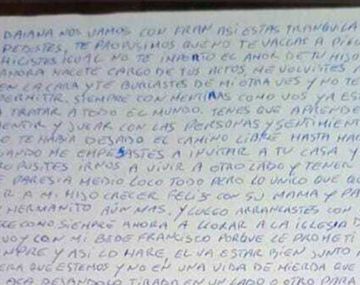 DAIANA NOS VAMOS CON FRAN ASI ESTAS TRANQUILA
PEDISTES, TE PROPUSIMOS QUE NO TE VALLAS A
HICISTES IGUAL NO TE INPORTO EL AMOR DE TU HIJO
AHORA HACETE CARGO DE TUS ACTOS, ME VOLVISTES
EN LA CARA Y TE BURLASTES DE MI OTRA VES Y NO TE
PERMITIR. SIEMPRE CON MENTIRAS COMO VOS YA ES
A TRATAR A TODO EL MUNDO. TENES QUE APREND
ENTIR Y JUGAR CON LAS PERSONAS Y SENTIMIENT
O TE HABIA DEJADO EL CAMINO LIBRE HASTA HA
ANDO ME EMPESASTES A INVITAR A TU CASA Y
ROPUSITES IRNOS A VIVIR A OTRO LADO Y TENER
PARES A MEDIO LOCO TODO PERO LO UNICO QUE Q
IR A MI HIJO CRECER FELIS CON SU MAMA Y PA
HERMANITO AUN MAS, Y LUEGO ARRANCASTES CON
RE COMO SIEMPRE AHORA A LLORAR A LA IGLESIA D
VOY CON MI BEBE FRANCISCO PORQUE LE PROMETI
MPRE Y ASI LO HARE, EL VA ESTAR BIEN JUNTO A
ERA QUE ESTEMOS Y NO EN UNA VIDA DE MIERDA QUE
ACA DEJANDOLO TIRADO EN UN LADO Y OTRO PARA